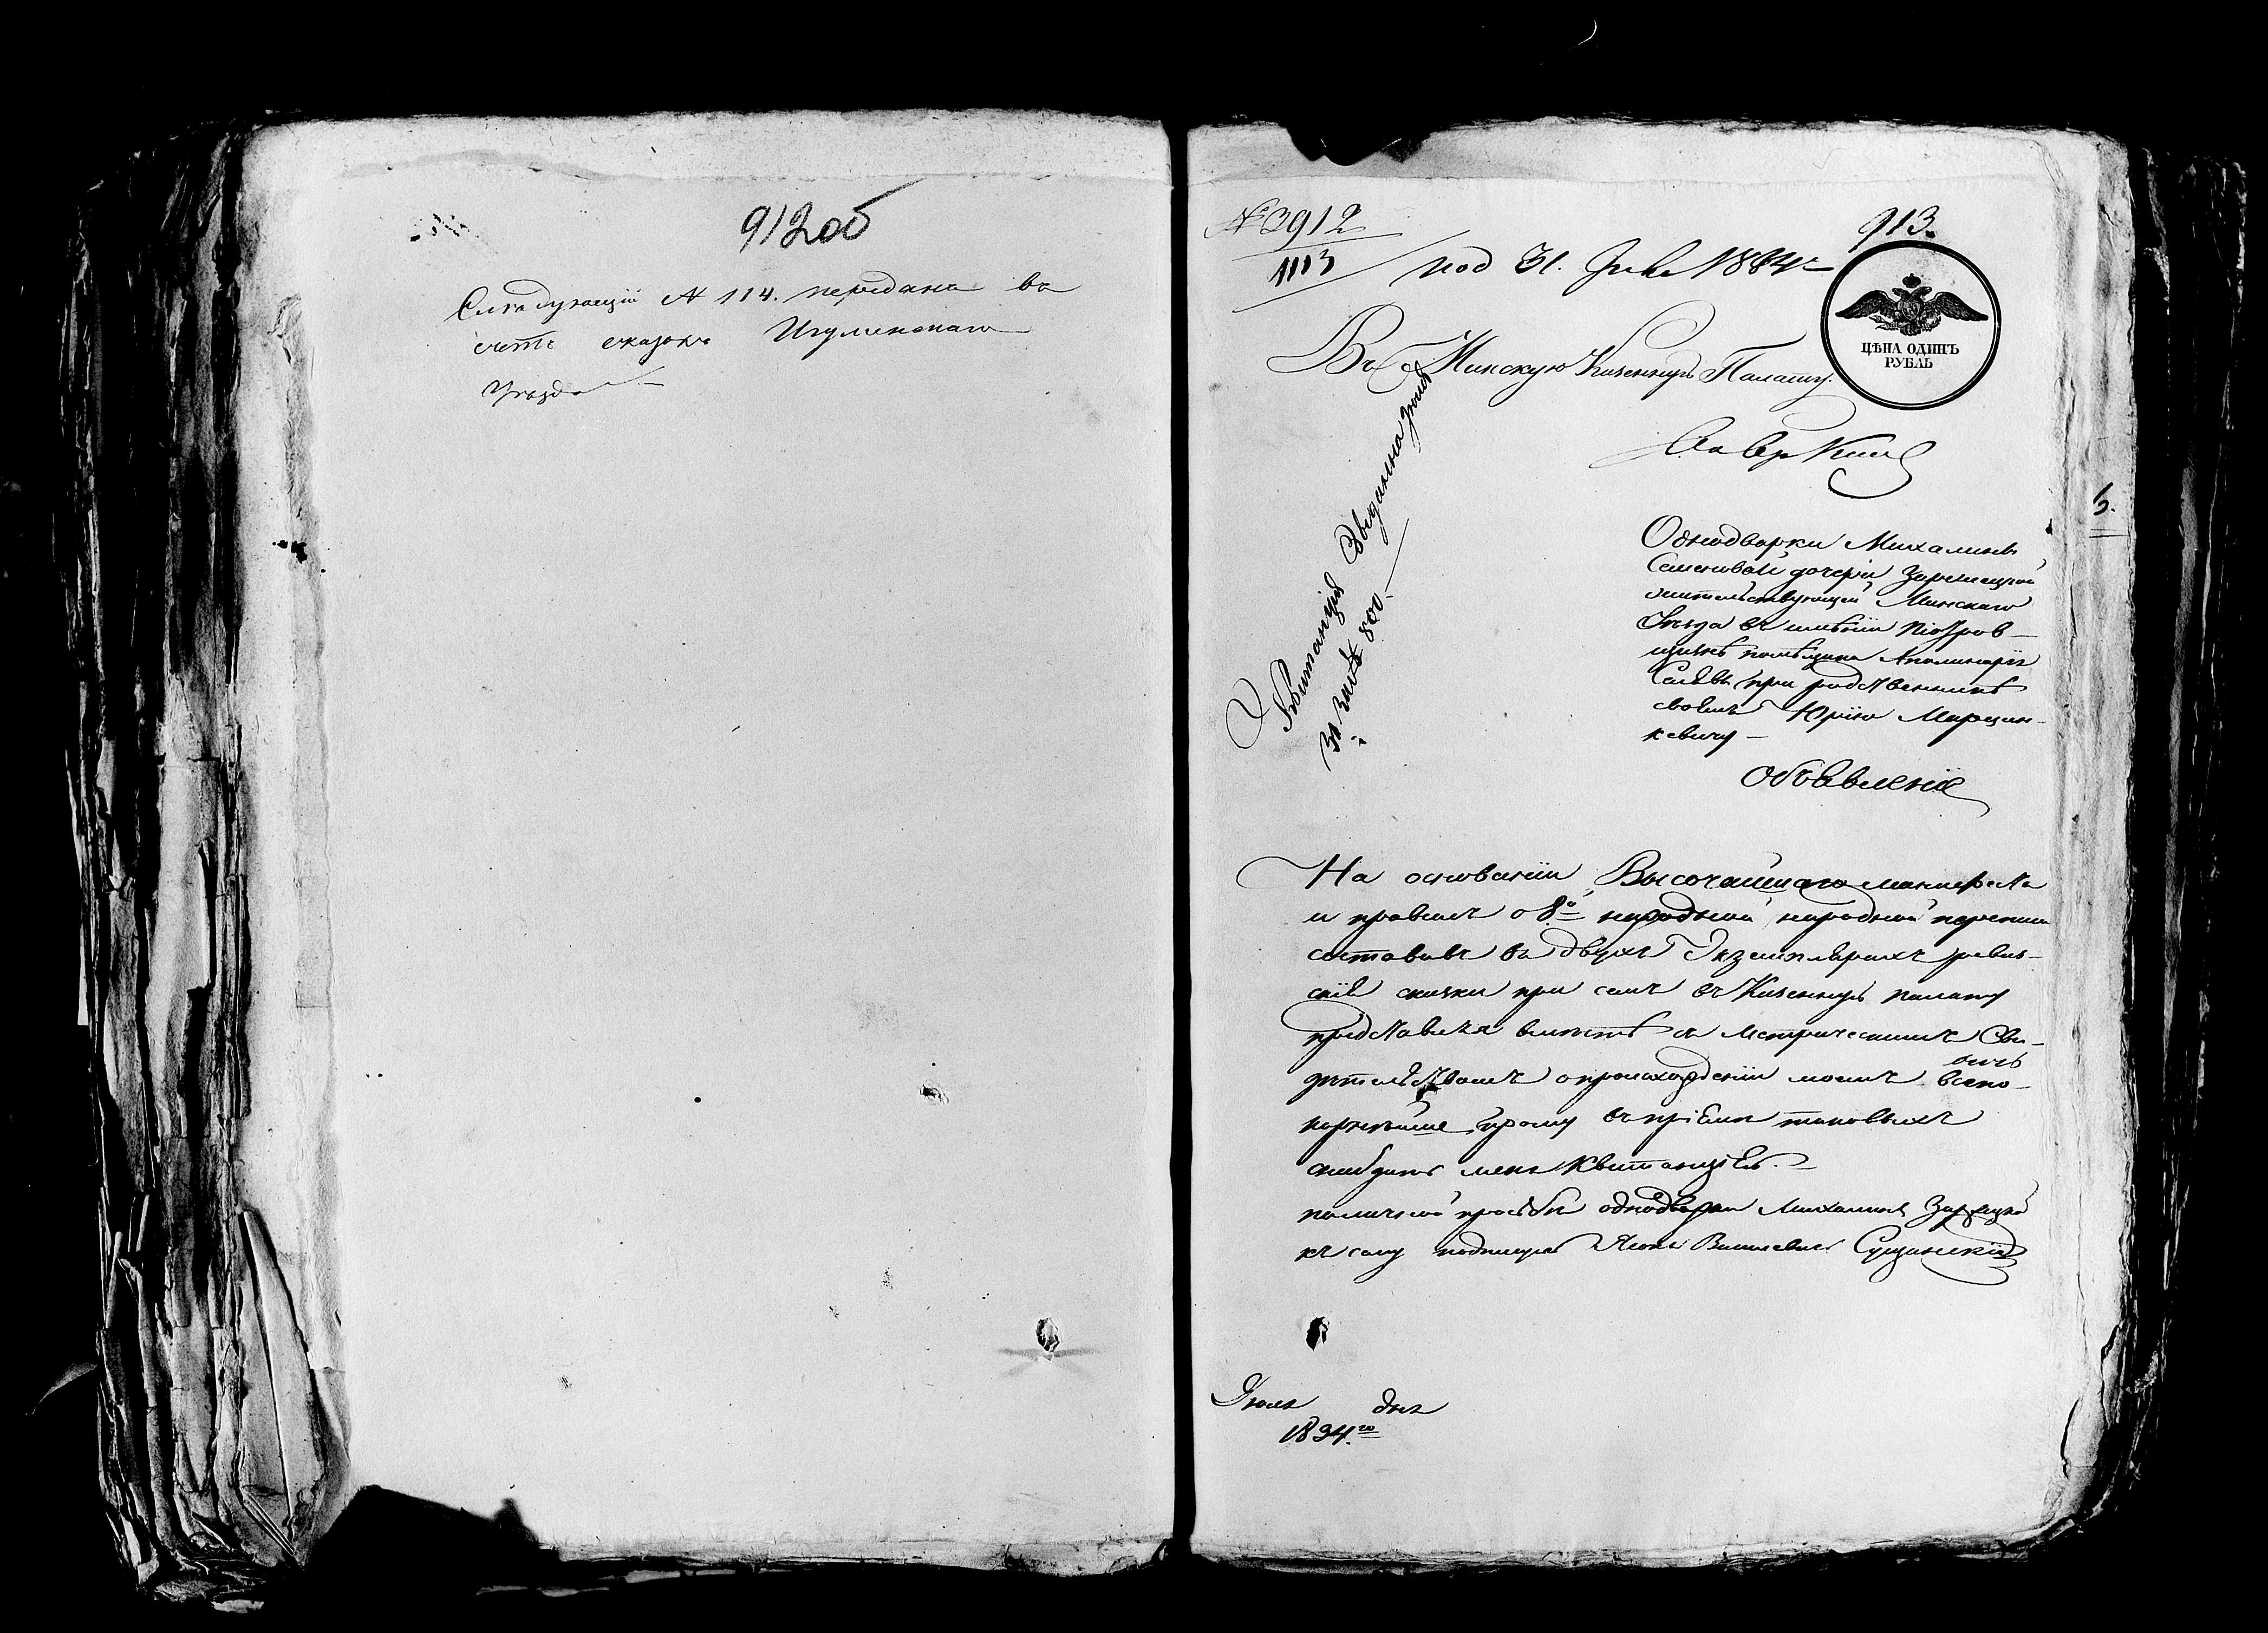 912об
Следующій № 114. передана въ
счетъ сказокъ Игуменскаго
Уезда
№ 3912
1113
под 31. Июля 1834
913.
ЦѢНА ОДИНЪ
РУБЛЬ
Въ Минскую Казенную Палату.
5.
Квитанція выдана
за № 800.
Однодворки Михалины
Семеновой дочери Зарецкой
жительствующей Минскаго
Уезда въ имѣніи Піотров-
щизнѣ помѣщика Аполинарія
при родственникѣ
своемъ Юрію Марцин-
кевичу
Объявленіе
На основаніи Высочайшаго манифеста
и правилъ о 8й народной народной переписи
составивъ въ двухъ Экземплярахъ ревиз-
скія сказки при семъ въ Казенную палату
представляя вместѣ съ Метрическимъ Сви-
детельствомъ о происхожденіи моемъ всепо-
корнейше прошу въ пріемѣ таковыхъ
снабдить меня Квитанціею.
по личной просьбе однодворки Михалины Зарецкой
къ сему подписуюсь
Июля дня
1834го